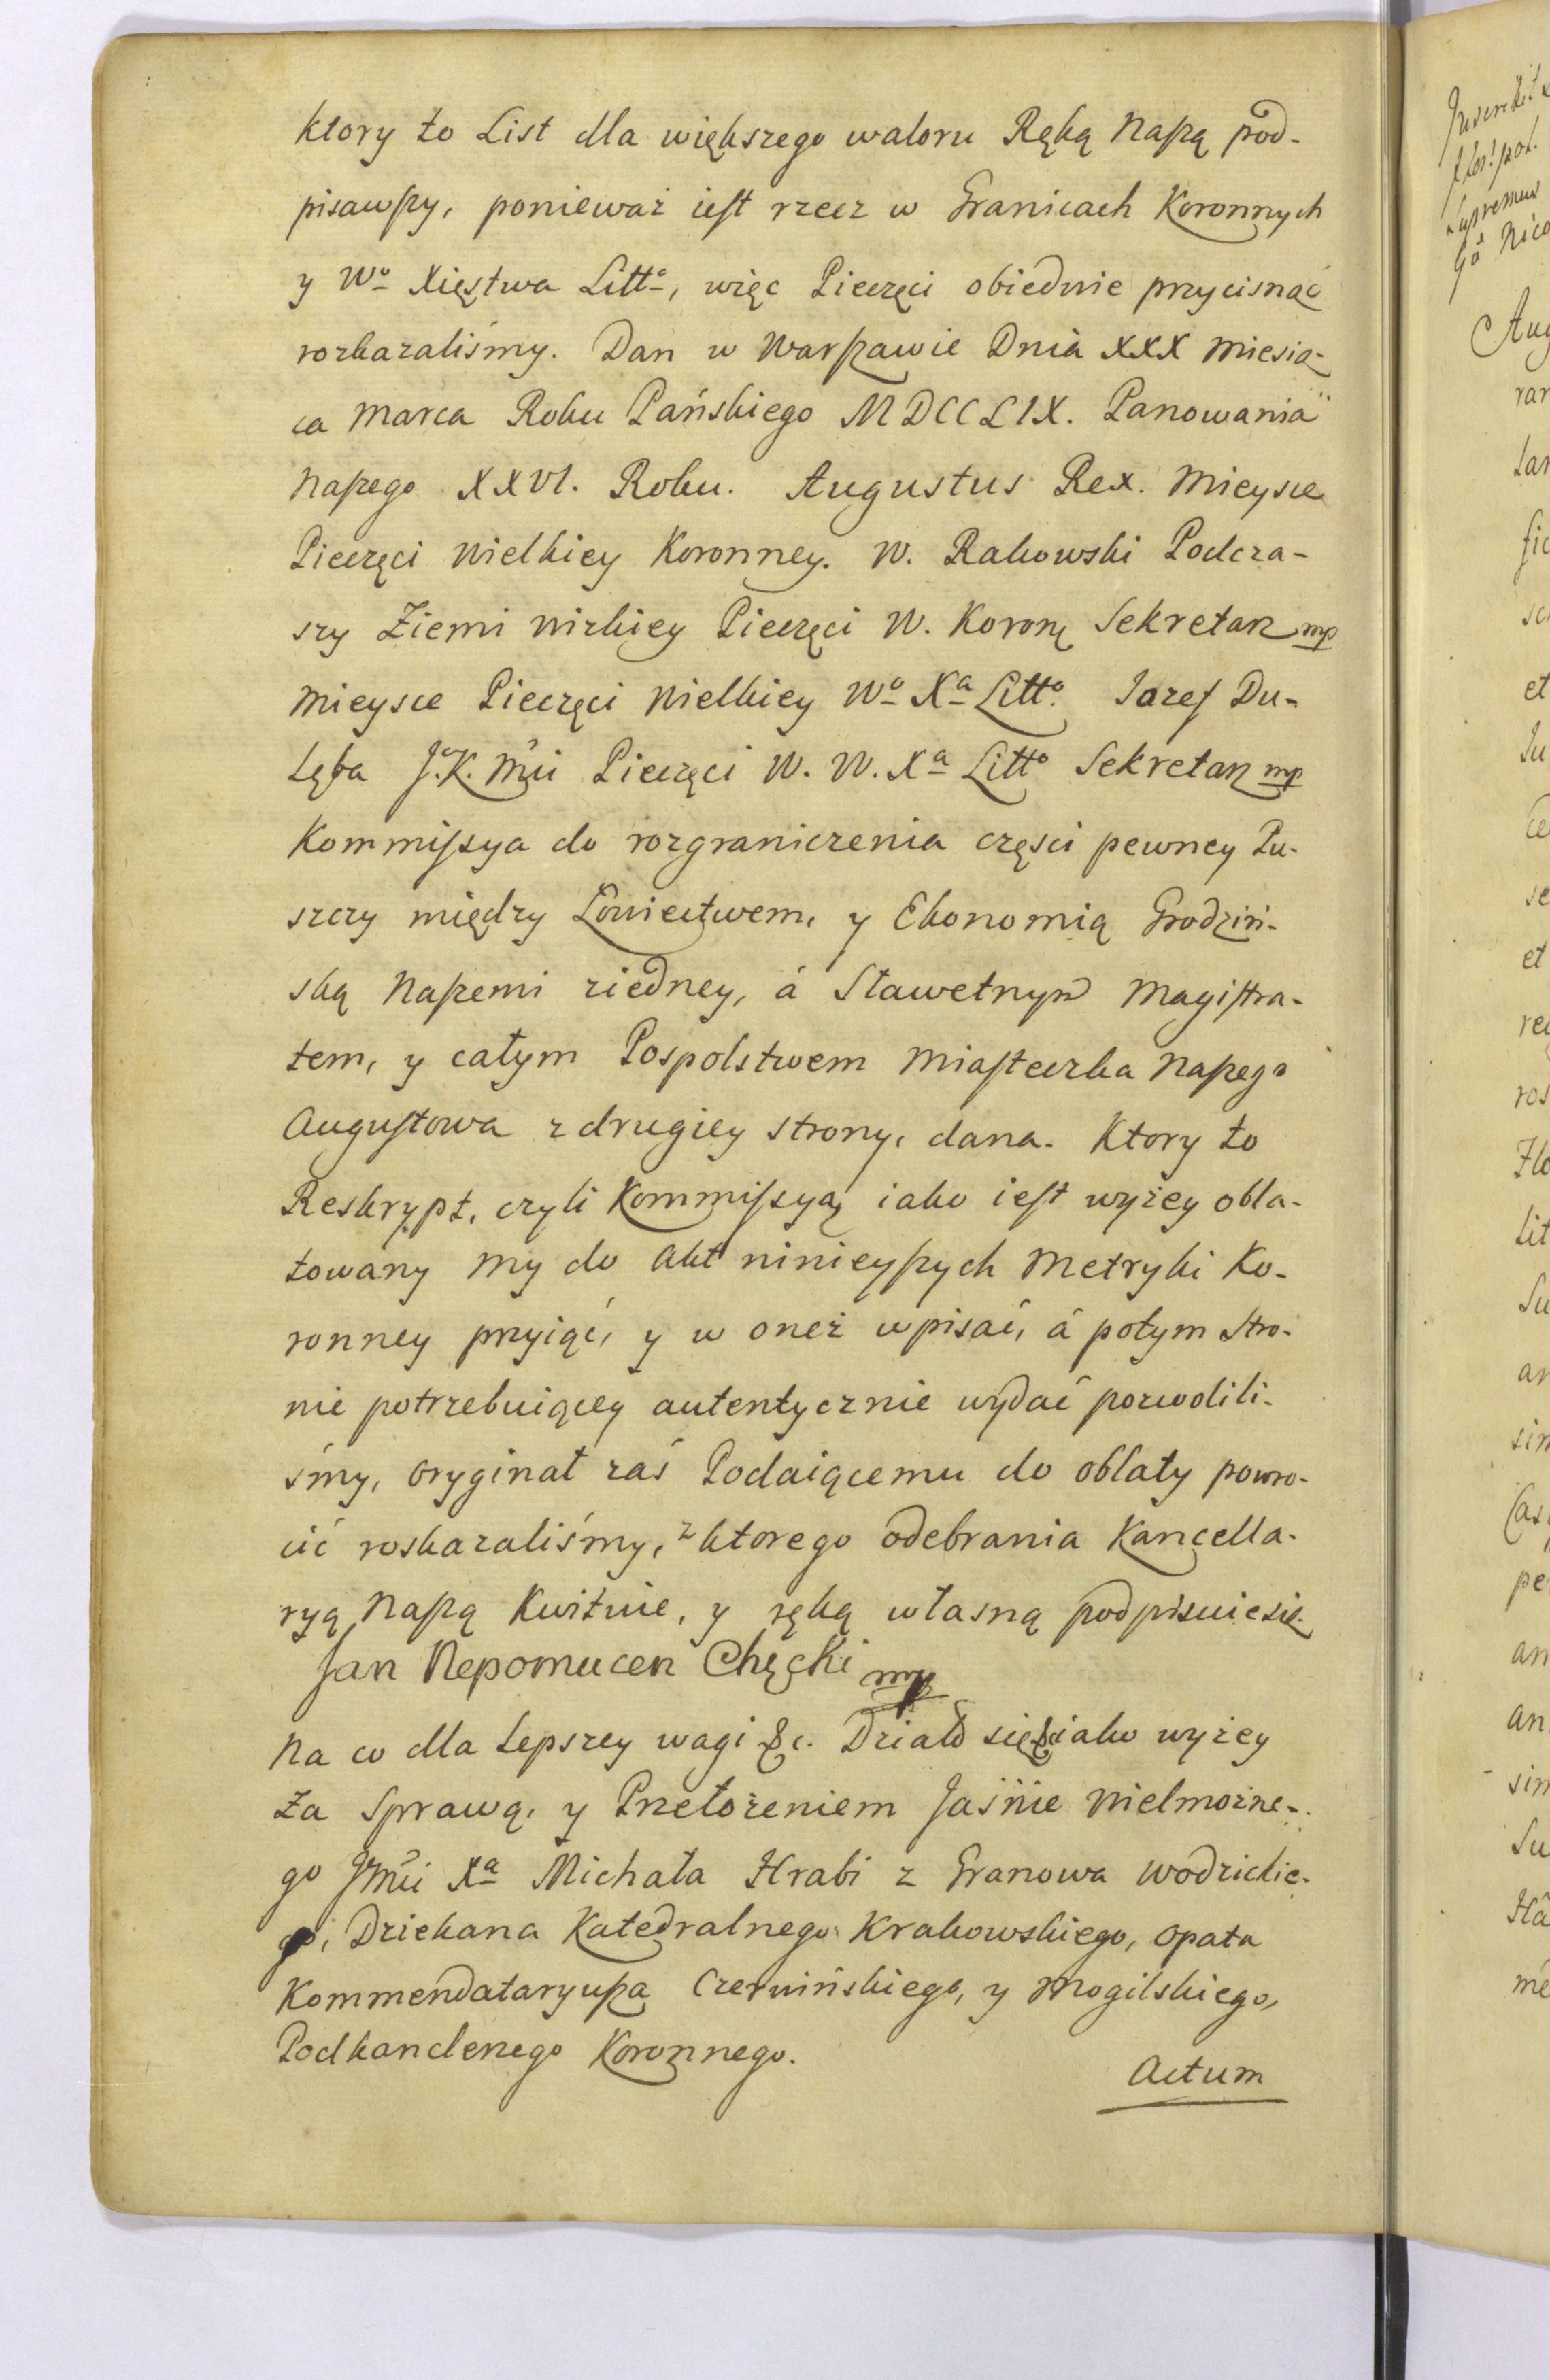 ktory to List dla większego waloru Ręką Naszą pod-
pisawszy, ponieważ iest rzecz w Granicach Koronnych
y Wo Xięstwa Litto, więc Pieczęci obiedwie przycisnąć
rozkazaliśmy. Dan w Warszawie Dnia XXX Miesią-
ca Marca Roku Pańskiego MDCCLIX. Panowania
Naszego XXVI. Roku. Augustus Rex. Mieysce
Pieczęci Wielkiey Koronney. W. Rakowski Podcza-
szy Ziemi Wizkiey Pieczęci W. Koronę Sekretarz mp
Mieysce Pieczęci Wielkiey Wo Xa Litto Iozef Du-
lęba J. K. Mći Pieczęci W. W. Xa Litto Sekretarz mp
Kommissya do rozgraniczenia częsci pewney Pu-
szczy między Łowiectwem, y Ekonomią Grodziń-
ską Naszemi ziedney, á Sławetnym Magistra-
tem, y całym Pospolstwem Miasteczka Naszego
Augustowa z drugiey strony, dana. Ktory to
Reskrypt, czyli Kommissyą iako iest wyżey obla-
towany My do Akt ninieyszych Metryki Ko-
ronney przyiąć, y w oneż wpisać, á potym Stro-
nie potrzebuiącey autentycznie wydać pozwolili-
śmy, oryginał zaś Podaiącemu do oblaty powro-
cić roskazaliśmy, z ktorego odebrania Kancella-
ryą Naszą Kwituie, y ręką własną podpisuie się
Jan Nepomucen Chęcki mp
Na co dla Lepszey wagi &c. Działo się &c iako wyżey
Za Sprawą, y Przełożeniem Jaśnie Wielmożne-
go Jmći Xa Michała Hrabi z Granowa Wodzickie-
go, Dziekana Katedralnego Krakowskiego, Opata
Kommendataryusza Czerwińskiego, y Mogilskiego,
Podkanclerzego Koronnego.
Actum